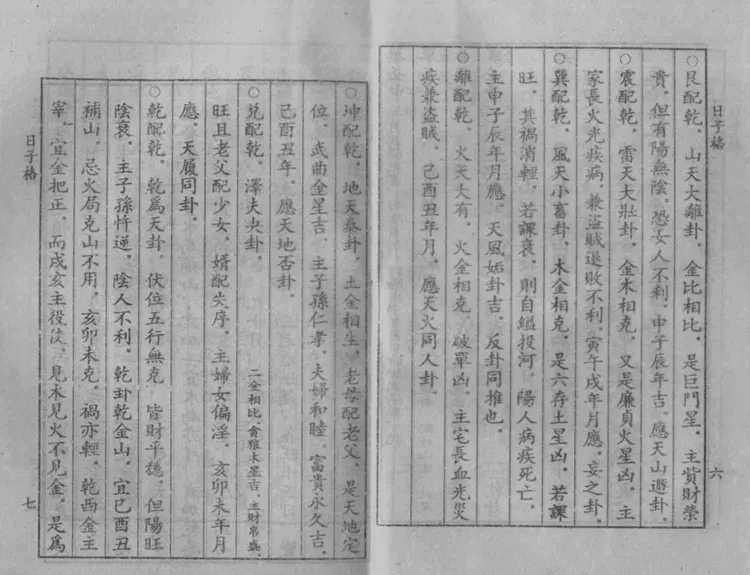 日子格
六
○艮配乾。山天大離卦。金比相比。是巨門星。主賞財榮
貴。但有陽無陰。恐女人不利。申子辰年吉。應天山遯卦。
○震配乾。雷天大壯卦。金木相克。又是廉貞火星凶。主
家長火光疾病。兼盜賊退敗不利。寅午戌年月應。妄之卦。
○巽配乾。風天小畜卦。木金相克。是六存土星凶。若課
旺。其禍消輕。若課衰。則自縊投河。陽人病疾死亡。
主申子辰年月應。天風姤卦吉。反卦同推也。
○離配乾。火天大有。火金相克。破單凶。主宅長血光災
疾兼盜賊。己酉丑年月。應天火同人卦。
○坤配乾。地天泰卦。土金相生。老母配老父。是天地定
位。武曲金星吉。主子孫仁孝。夫婦和睦。富貴永久吉。
己酉丑年。應天地否卦。
○兌配乾。澤夫夬卦。二金相比。貪狼木星吉。主財帛盛。
旺且老父配少女。婿配失序。主婦女偏淫。亥卯未年月
應。天履同卦。
○乾配乾。乾為天卦。伏位五行無克。皆財平穩。但陽旺
陰衰。主子孫忤逆。陰人不利。乾卦乾金山。宜己酉丑
補山。忌火局克山不用。亥卯未克。禍亦輕。乾西金主
宰。宜金把正。而戌亥主役汝。見木見火不見金。是為
日子格
七